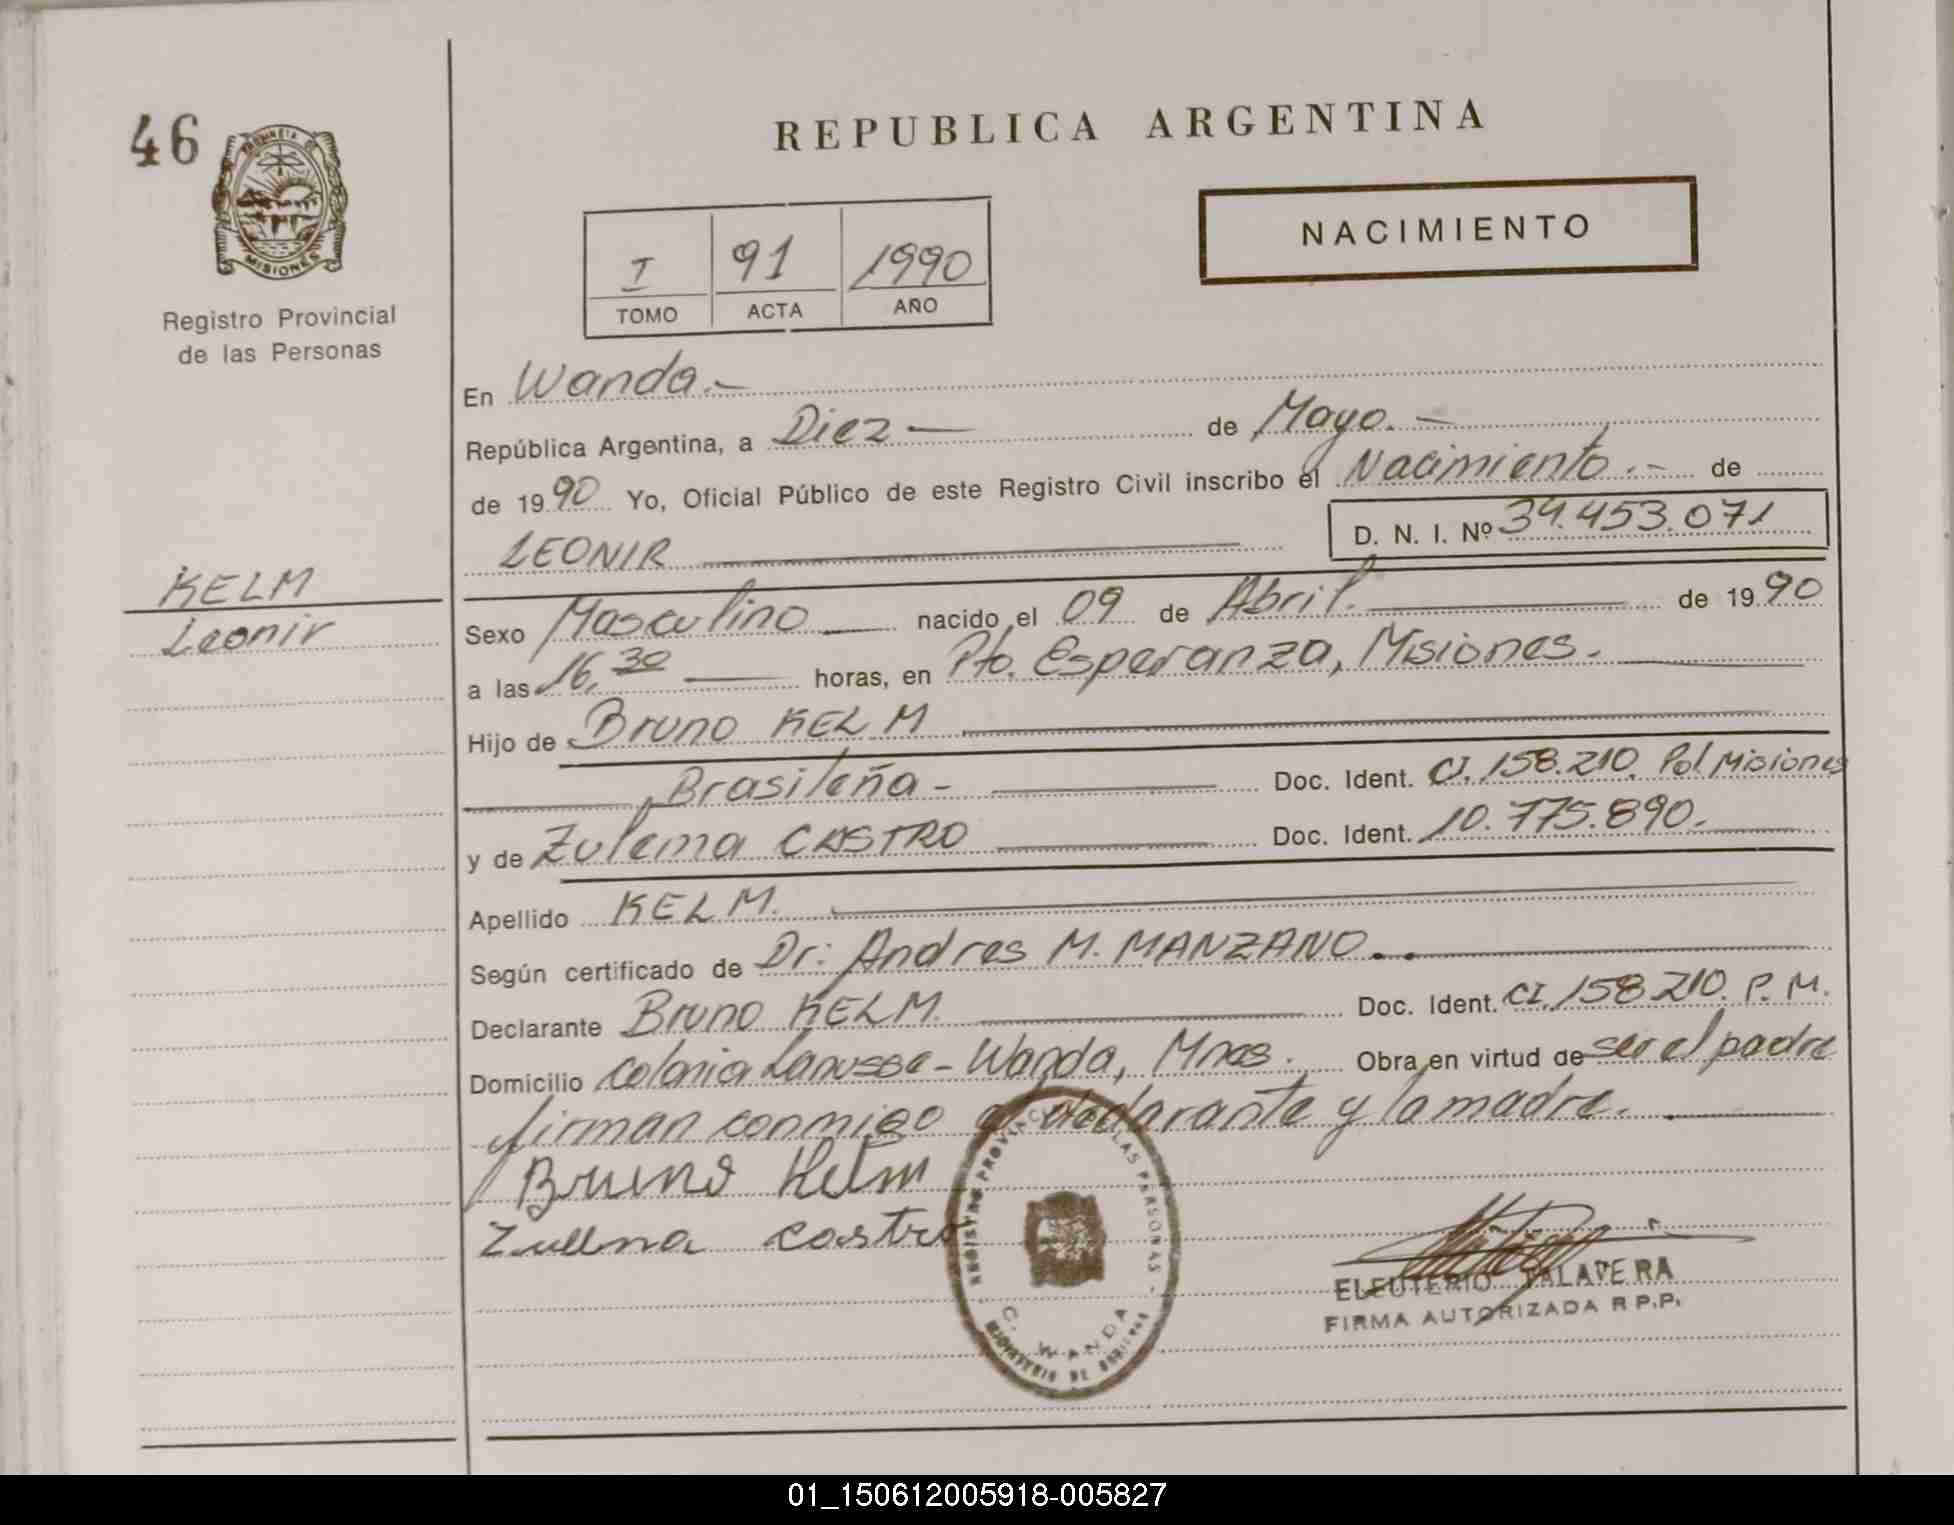 46
PROVINCIA DE
MISIONES
Registro Provincial
de las Personas
REPUBLICA ARGENTINA
NACIMIENTO
I 91 1990
TOMO ACTA AÑO
En Wanda.-
República Argentina, a Diez — de Mayo. -
de 1990 Yo, Oficial Público de este Registro Civil inscribo el Nacimiento.- de
LEONIR D. N. I. Nº 34.453.071
KELM
Leonir
Sexo Masculino nacido el 09 de Abril. de 1990
a las 16,30 horas, en Pto. Esperanza, Misiones.
Hijo de Bruno KELM
Brasileña - Doc. Ident. CI. 158.210. Pol Misiones
y de Zulema CASTRO Doc. Ident. 10.775.890.
Apellido KELM.
Según certificado de Dr: Andres M. MANZANO.
Declarante Bruno KELM. Doc. Ident. CI. 158210. P. M.
Domicilio Colonia Lanusse - Wanda, Mnes. Obra en virtud de ser el padre
firman conmigo el declarante y la madre.
Bruno Kelm
Zulema Castro
REGISTRO PROVINCIAL DE LAS PERSONAS -
C. WANDA
MINISTERIO DE GOBIERNO
ELEUTERIO TALAVERA
FIRMA AUTORIZADA R P.P.
01_150612005918-005827